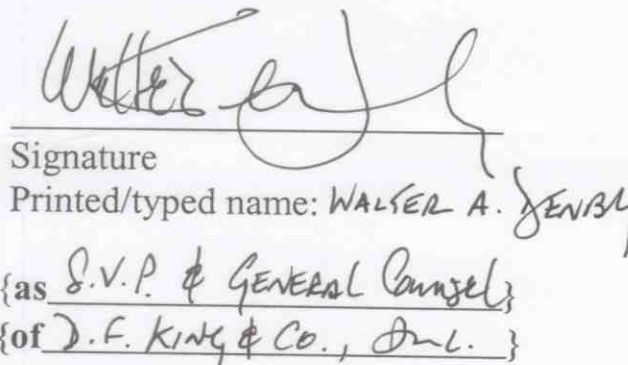 Walter
Signature
Printed/typed name: WALTER A. DENBY
{as S.V.P. & GENERAL Counsel}
{of D.F. KING & Co., Inc. }